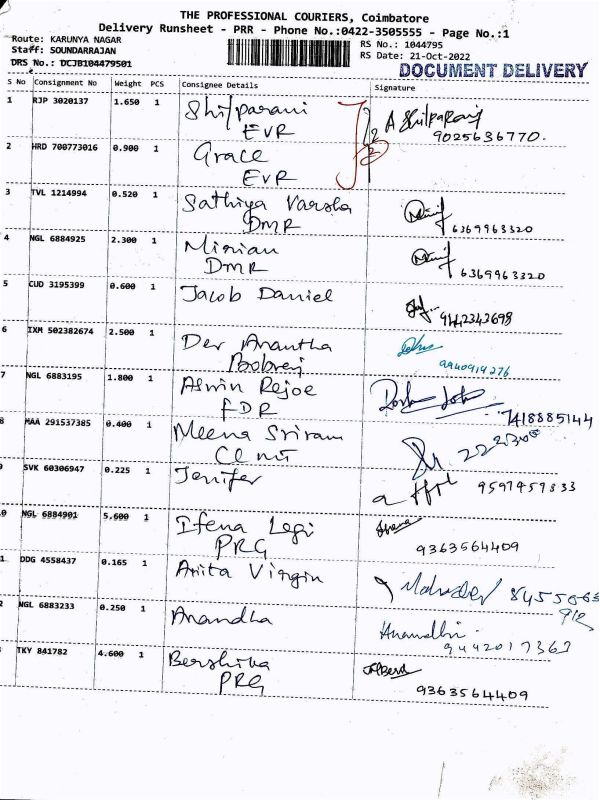 THE PROFESSIONAL COURIERS, Coimbatore
Delivery Runsheet - PRR - Phone No.:0422-3505555 - Page No.:1
Route: KARUNYA NAGAR
Staff: SOUNDARRAJAN
DRS No.: DCJB104479501
RS No.: 1044795
RS Date: 21-Oct-2022
DOCUMENT DELIVERY
S No Consignment No Weight PCS Consignee Details Signature
1 RJP 3020137 1.650 1 Shilparani A Shilparani
EVR 9025636770.
2 HRD 700773016 0.900 1 Grace
EVR
3 TVL 1214994 0.520 1 Sathiya Varsha
DMR 6369963320
4 NGL 6884925 2.300 1 Mirian
DMR 6369963320
5 CUD 3195399 0.600 1 Jacob Daniel
9442343698
6 IXM 502382674 2.500 1 Dev Anantha
9940914276
7 NGL 6883195 1.800 1 Aswin Rejoe
FDR 7418885144
8 MAA 291537385 0.400 1 Meena Sriram
9 SVK 60306947 0.225 1 Jenifer
9597457833
0 NGL 6884901 5.600 1 Ifena Legi
PRG 9363564409
1 DDG 4558437 0.165 1 Anita Virgin
2 NGL 6883233 0.250 1 Anandha Anandhi.
9442017363
3 TKY 841782 4.600 1 Bershiba
PRG 9363564409